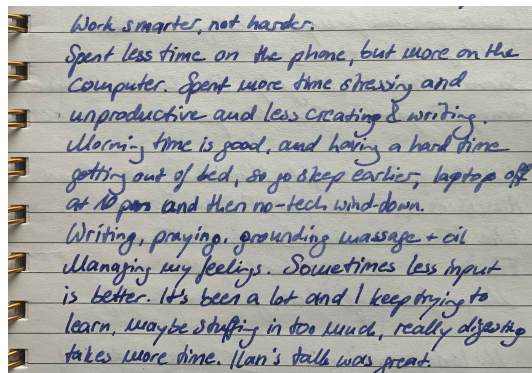 Work smarter, not harder.
Spent less time on the phone, but more on the
computer. Spent more time stressing and
unproductive and less creating & writing.
Morning time is good, and having a hard time
getting out of bed, so go sleep earlier, laptop off
at 10 pm and then no-tech wind-down.
Writing, praying, grounding massage + oil
Managing my feelings. Sometimes less input
is better. It's been a lot and I keep trying to
learn, maybe stuffing in too much, really digesting
takes more time. Ilan's talk was great.